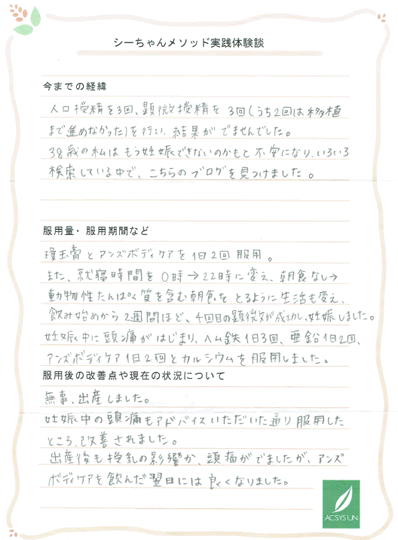 シーちゃんメソッド実践体験談
今までの経緯
人口授精を3回、顕微授精を3回(うち2回は移植
まで進めなかった)を行い、結果がでませんでした。
38歳の私はもう妊娠できないのかもと不安になり、いろいろ
検索している中で、こちらのブログを見つけました。
服用量・服用期間など
瓊玉膏とアンズボディケアを1日2回服用。
また、就寝時間を0時→22時に変え、朝食なし→
動物性たんぱく質を含む朝食をとるように生活も変え、
飲み始めから2週間ほど、4回目の顕微が成功し、妊娠しました。
妊娠中に頭痛がはじまり、ヘム鉄1日3回、亜鉛1日2回、
アンズボディケア1日2回とカルシウムを服用しました。
服用後の改善点や現在の状況について
無事、出産しました。
妊娠中の頭痛もアドバイスいただいた通り服用した
ところ、改善されました。
出産後も授乳の影響か、頭痛がでましたが、アンズ
ボディケアを飲んだ翌日には良くなりました。
ACSYS UN